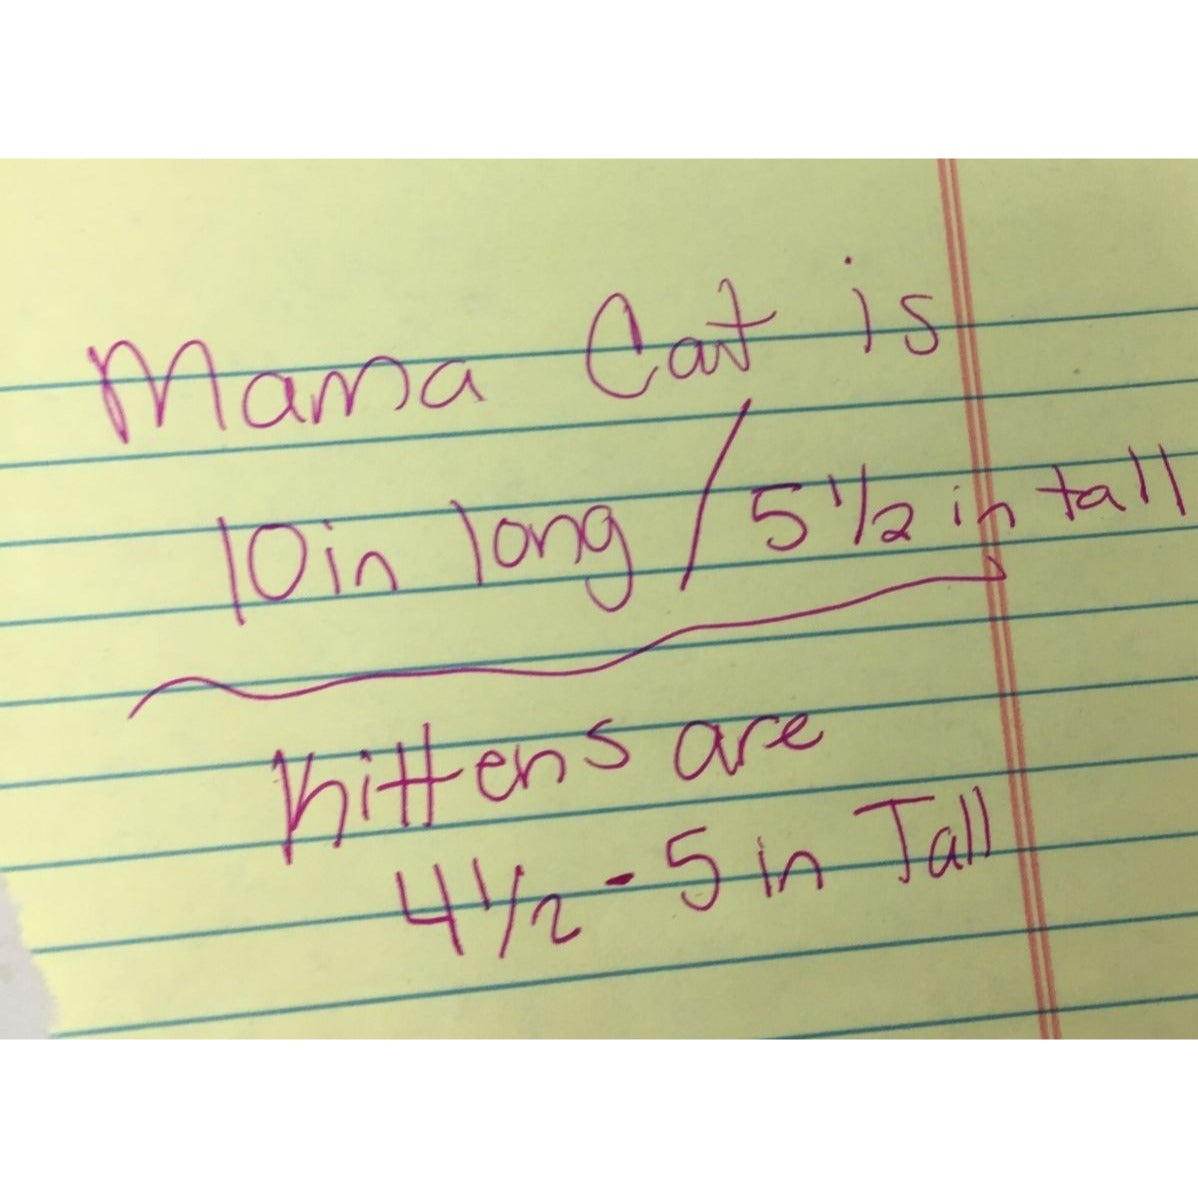 Mama Cat is
10in long / 5 1/2 in tall
Kittens are
4 1/2 - 5 in Tall